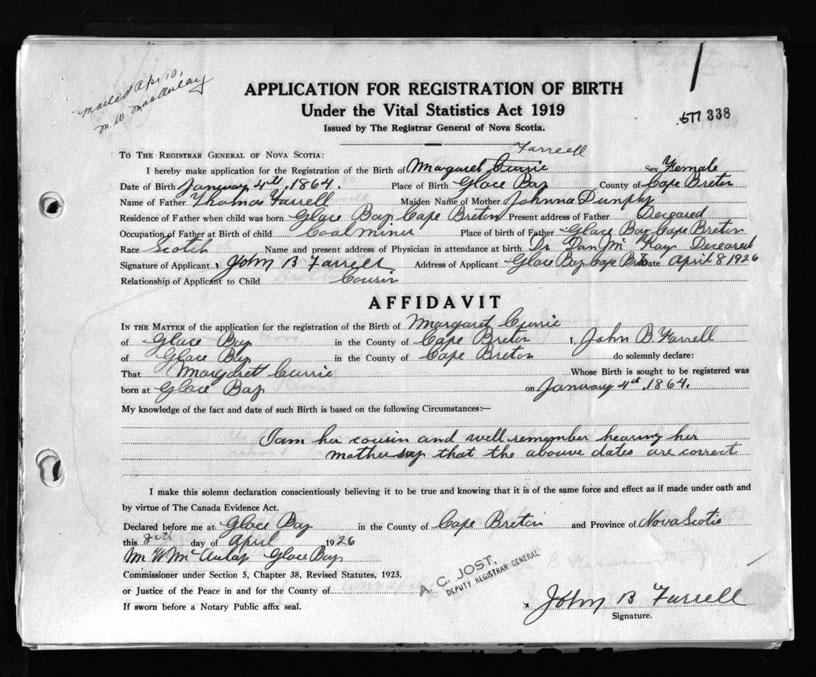 mailed Apr 10,
M. W. MacAulay
APPLICATION FOR REGISTRATION OF BIRTH
Under the Vital Statistics Act 1919
Issued by The Registrar General of Nova Scotia.
577 338
Farrell
TO THE REGISTRAR GENERAL OF NOVA SCOTIA:
I hereby make application for the Registration of the Birth of Margaret Currie Sex Female
Date of Birth January 4th, 1864. Place of Birth Glace Bay County of Cape Breton
Name of Father Thomas Farrell Maiden Name of Mother Johnna Dunphy
Residence of Father when child was born Glace Bay Cape Breton Present address of Father Deceared
Occupation of Father at Birth of child Coal miner Place of birth of Father Glace Bay Cape Breton
Race Scotch Name and present address of Physician in attendance at birth Dr Dan Mc Kay Deceared
Signature of Applicant John B Farrell Address of Applicant Glace Bay Cape Bret Date April 8 1926
Relationship of Applicant to Child Cousin
AFFIDAVIT
IN THE MATTER of the application for the registration of the Birth of Margaret Currie
of Glace Bay in the County of Cape Breton I, John B. Farrell
of Glace Bay in the County of Cape Breton do solemnly declare:
That Margarett Currie Whose Birth is sought to be registered was
born at Glace Bay on January 4th, 1864.
My knowledge of the fact and date of such Birth is based on the following Circumstances:—
I am her cousin and well remember hearing her
mother say that the abouve dates are correct
I make this solemn declaration conscientiously believing it to be true and knowing that it is of the same force and effect as if made under oath and
by virtue of The Canada Evidence Act.
Declared before me at Glace Bay in the County of Cape Breton and Province of Nova Scotia
this 8th day of April 1926
M W McAulay Glace Bay
Commissioner under Section 5, Chapter 38, Revised Statutes, 1923.
or Justice of the Peace in and for the County of
If sworn before a Notary Public affix seal.
A. C. JOST,
DEPUTY REGISTRAR GENERAL
x John B Farrell
Signature.